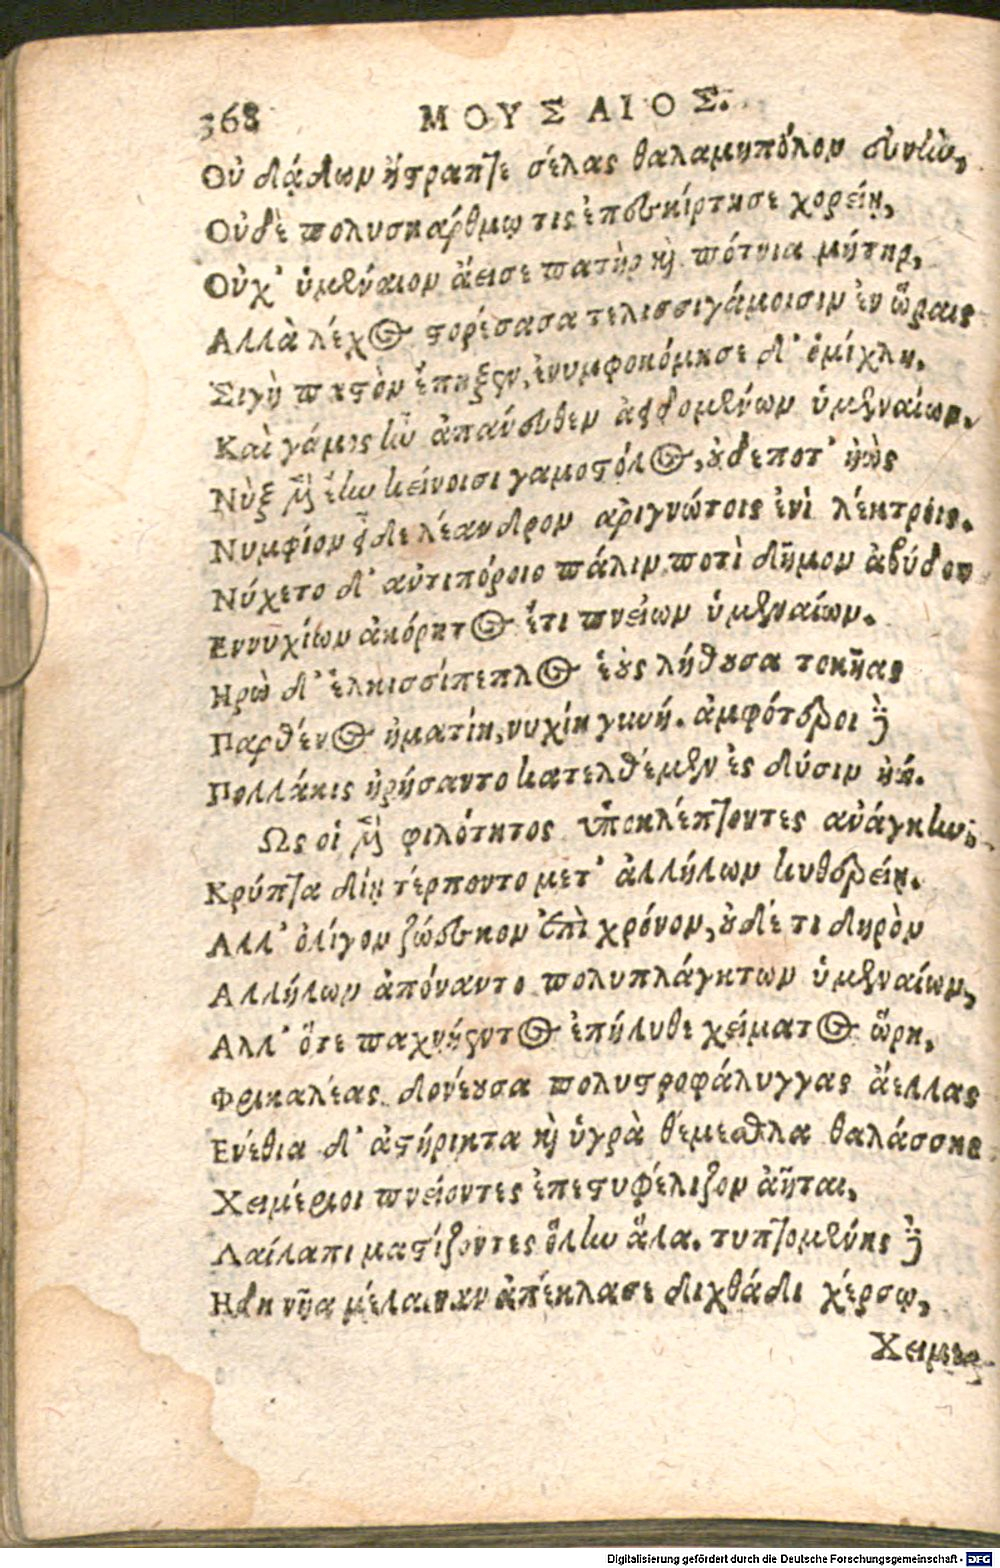 368 ΜΟΥΣΑΙΟΣ.
Οὐ δᾴδων ἤστραπτε σέλας θαλαμηπόλον εὐνὴν,
Οὐδὲ πολυσκάρθμῳ τις ἐπεσκίρτησε χορείῃ,
Οὐχ' ὑμέναιον ἄεισε πατὴρ καὶ πότνια μήτηρ,
Αλλὰ λέχος στορέσασα τελισσιγάμοισιν ἐν ὥραις
Σιγὴ παστὸν ἔπηξεν, ἐνυμφοκόμησε δ' ὁμίχλη.
Καὶ γάμος ἦν ἀπάνευθεν ἀειδομένων ὑμεναίων.
Νὺξ μὲν ἔην κείνοισι γαμοστόλος, οὐδέποτ' ἠὼς
Νυμφίον εἶδε λέανδρον ἀριγνώτοις ἐνὶ λέκτροις.
Νύχετο δ' αὐτιπόροιο πάλιν ποτὶ δῆμον ἀβύδου
Εννυχίων ἀκόρητος ἔτι πνείων ὑμεναίων.
Ηρὼ δ' ἑλκεσσίπεπλος ἑοὺς λήθουσα τοκῆας
Παρθένος ἠματίη, νυχίη γυνή. ἀμφότεροι δὲ
Πολλάκις ἠρήσαντο κατελθέμεν ἐς δύσιν ἠῶ.
Ως οἱ μὲν φιλότητος ὑποκλέπτοντες ἀνάγκην
Κρύπτα δίῃ τέρποντο μετ' ἀλλήλων κυθερείῃ.
Αλλ' ὀλίγον ζώεσκον ἐπὶ χρόνον, οὐδέ τι δηρὸν
Αλλήλων ἀπόναντο πολυπλάγκτων ὑμεναίων,
Αλλ' ὅτε παχνήεντος ἐπήλυθε χείματος ὥρη,
Φρικαλέας δονέουσα πολυστροφάλυγγας ἀέλλας
Ενέθια δ' ἀστήρικτα καὶ ὑγρὰ θέμεθλα θαλάσσης
Χειμέριοι πνείοντες ἐπεστυφέλιζον ἀῆται,
Λαίλαπι μαστίζοντες ὅλην ἅλα. τυπτομένης δὲ
Ηδη νῆα μέλαιναν ἀπέκλασε διχθάδι χέρσῳ,
Χειμερ
Digitalisierung gefördert durch die Deutsche Forschungsgemeinschaft - DFG